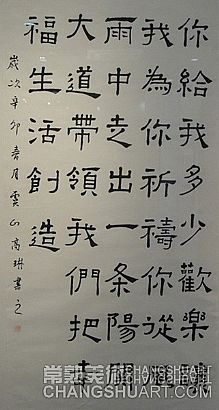 你給我多少歡樂
我為你祈禱你從
雨中走出一条陽關
大道帶領我們把幸
福生活創造
歲次辛卯春月雲山高琳書之
常熟美術
CHANGSHUART.COM